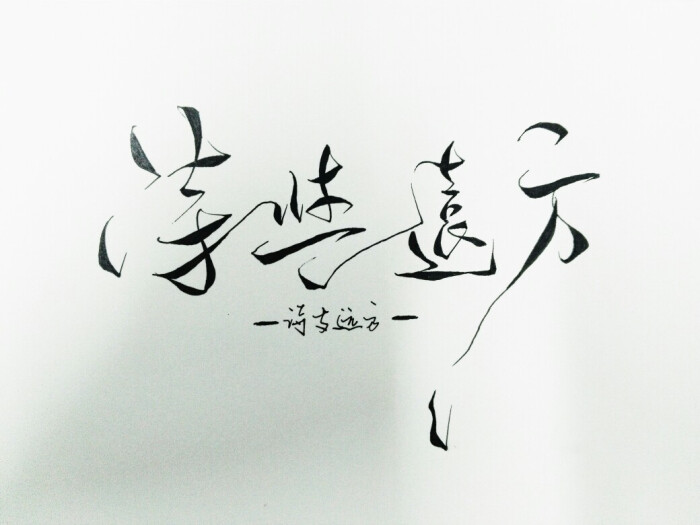 诗与遠方
诗与远方